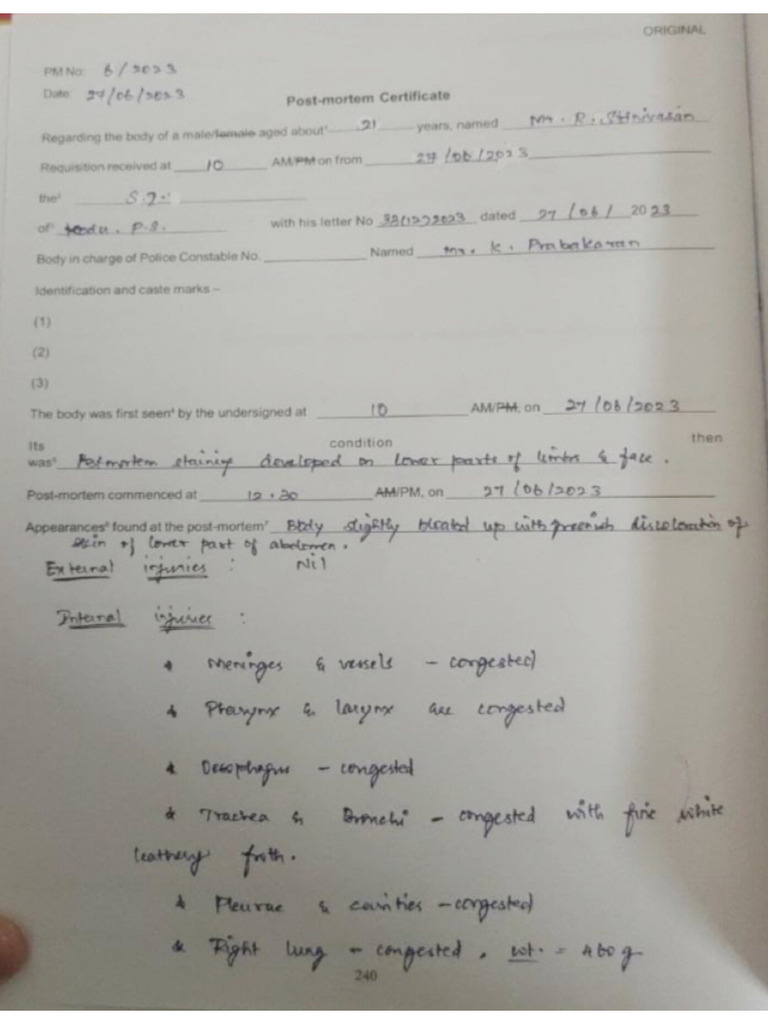 ORIGINAL
PM No: 6/2023
Date: 27/06/2023
Post-mortem Certificate
Regarding the body of a male/female aged about¹ 21 years, named Mr. R. Srinivasan
Requisition received at 10 AM/PM on from 27/06/2023
the² S.I.
of³ P.S. with his letter No dated 27/06/ 2023
Body in charge of Police Constable No. Named Mr. K. Prabakaran
Identification and caste marks –
(1)
(2)
(3)
The body was first seen⁴ by the undersigned at 10 AM/PM, on 27/06/2023
Its condition then
was⁵ Postmortem staining developed on lower parts of limbs & face.
Post-mortem commenced at 12.30 AM/PM, on 27/06/2023
Appearances⁶ found at the post-mortem⁷ Body slightly bloated up with greenish discoloration of
skin of lower part of abdomen.
External injuries : Nil
Internal injuries :
* Meninges & vessels - congested
* Pharynx & larynx are congested
* Oesophagus - congested
* Trachea & Bronchi - congested with fine white
leathery froth.
* Pleurae & cavities - congested
* Right lung - congested, wt. = 460 g
240